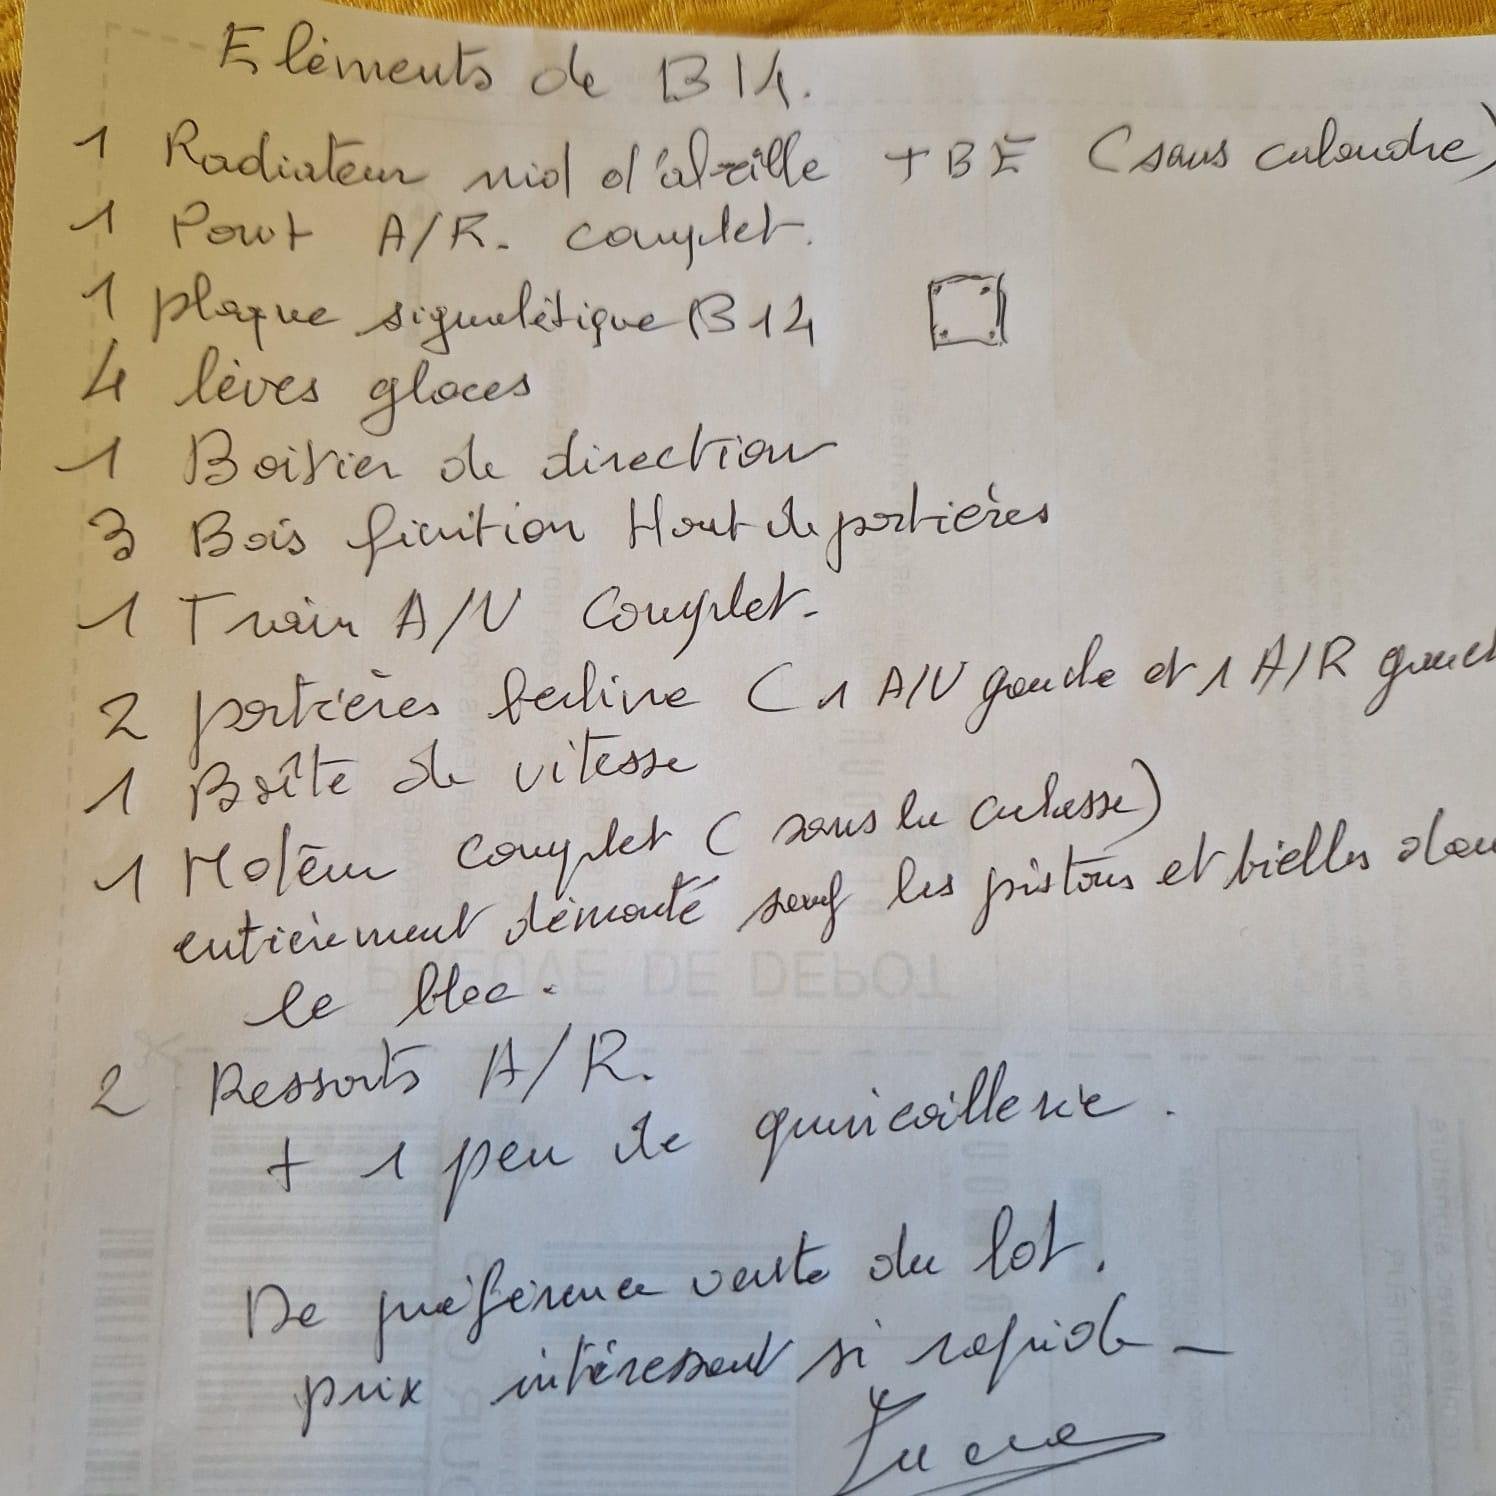 Eléments de B14.
1 Radiateur nid d'abeille TBE (sans calandre)
1 Pont A/R. complet.
1 plaque signalétique B14
4 lèves glaces
1 Boitier de direction
3 Bois finition Haut de portières
1 Train A/V complet.
2 portières berline (1 A/V gauche et 1 A/R gauch
1 Boîte de vitesse
1 Moteur complet (sans la culasse)
entièrement démonté sauf les pistons et bielles dan
le bloc.
2 Ressorts A/R.
+ 1 peu de quincaillerie.
De préférence vente du lot.
prix intéressant si rapide _
PREUVE DE DEPOT